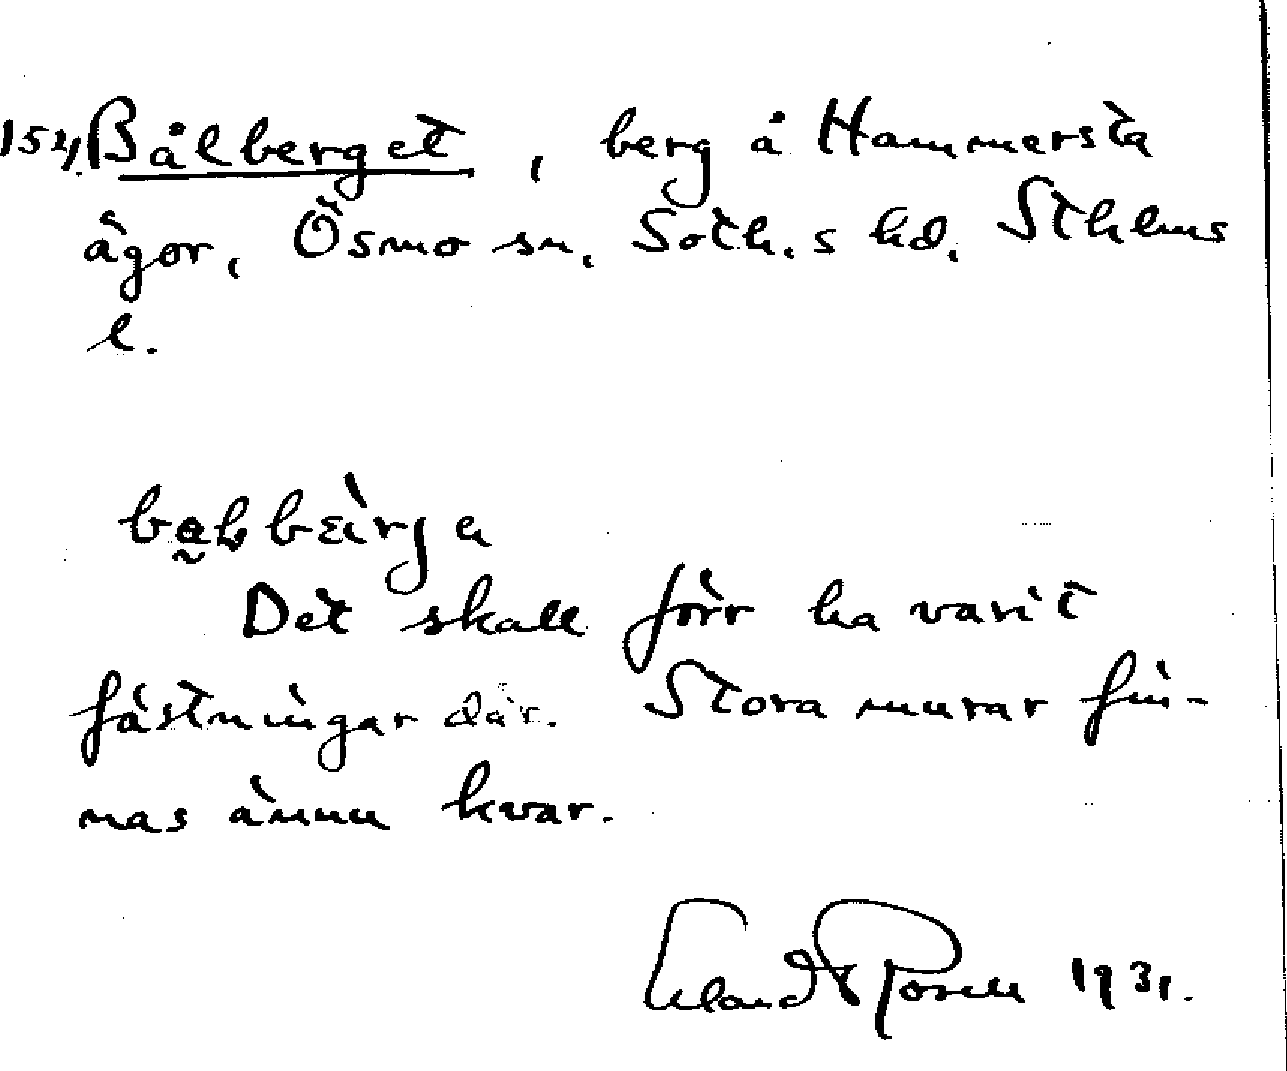 154. Bålberget, berg å Hammersta
ägor, Ösmo sn, Soth.s hd, Sthlms
l.
Det skall förr ha varit
fästningar där. Stora murar fin-
nas ännu kvar.
Erland Rosell 1931.